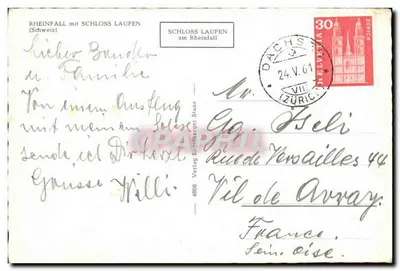 RHEINFALL mit SCHLOSS LAUFEN
(Schweiz)
SCHLOSS LAUFEN
am Rheinfall
Lieber
u Familie
Von einem Ausflug
mit meinem
sende ich Dir herzl
Willi.
4808 Verlag
HELVETIA
30
ZÜRICH
DACHSEN
24.V.61
VII
(ZÜRICH)
Mr.
Gg. Iseli
Rue de Versailles 44
Vil de Avray.
France.
Seine Oise.